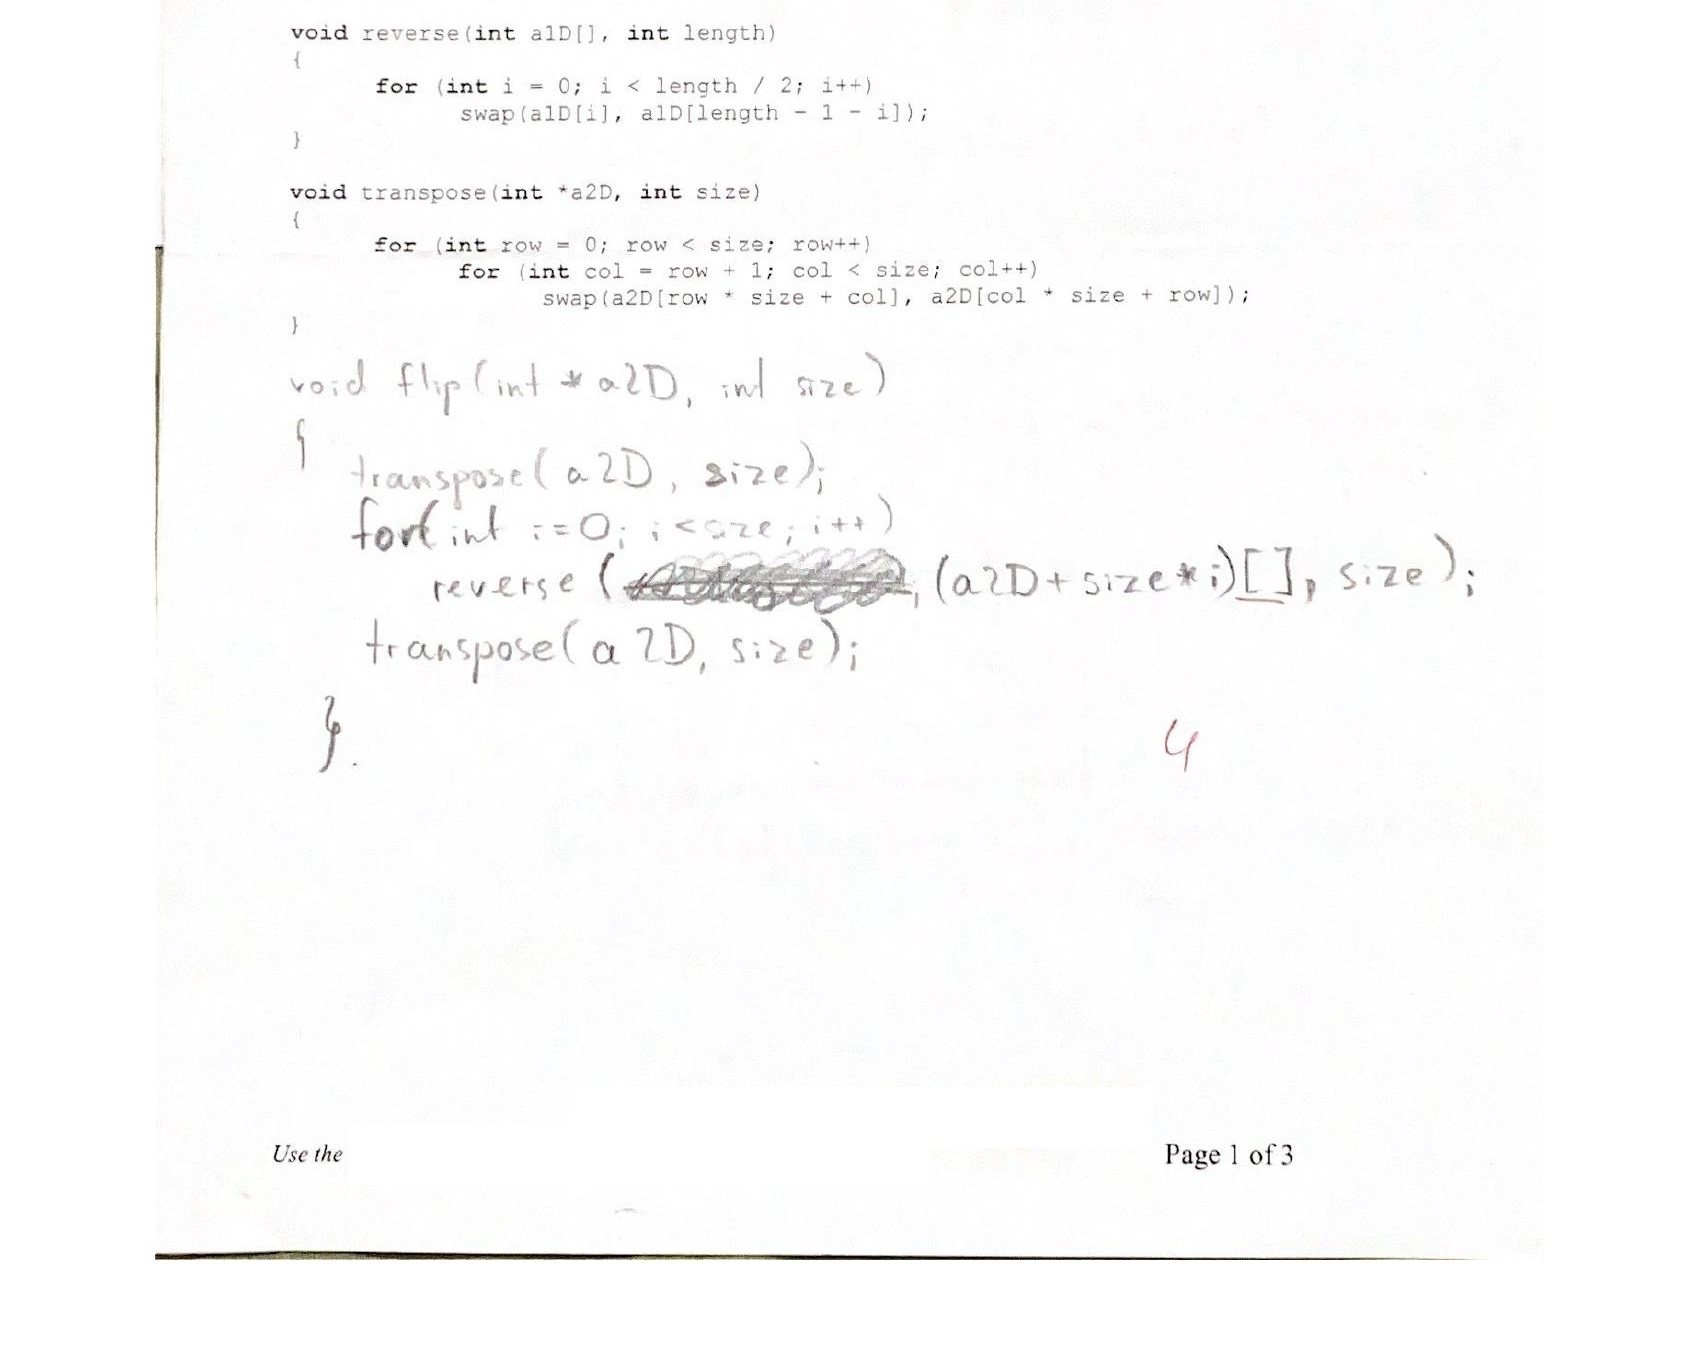 void reverse(int a1D[], int length)
{
for (int i = 0; i < length / 2; i++)
swap(a1D[i], a1D[length - 1 - i]);
}
void transpose(int *a2D, int size)
{
for (int row = 0; row < size; row++)
for (int col = row + 1; col < size; col++)
swap(a2D[row * size + col], a2D[col * size + row]);
}
void flip(int * a2D, int size)
{
transpose(a2D, size);
for(int i=0; i<size; i++)
reverse ( (a2D+size*i)[], size);
transpose(a2D, size);
}.
4
Use the
Page 1 of 3